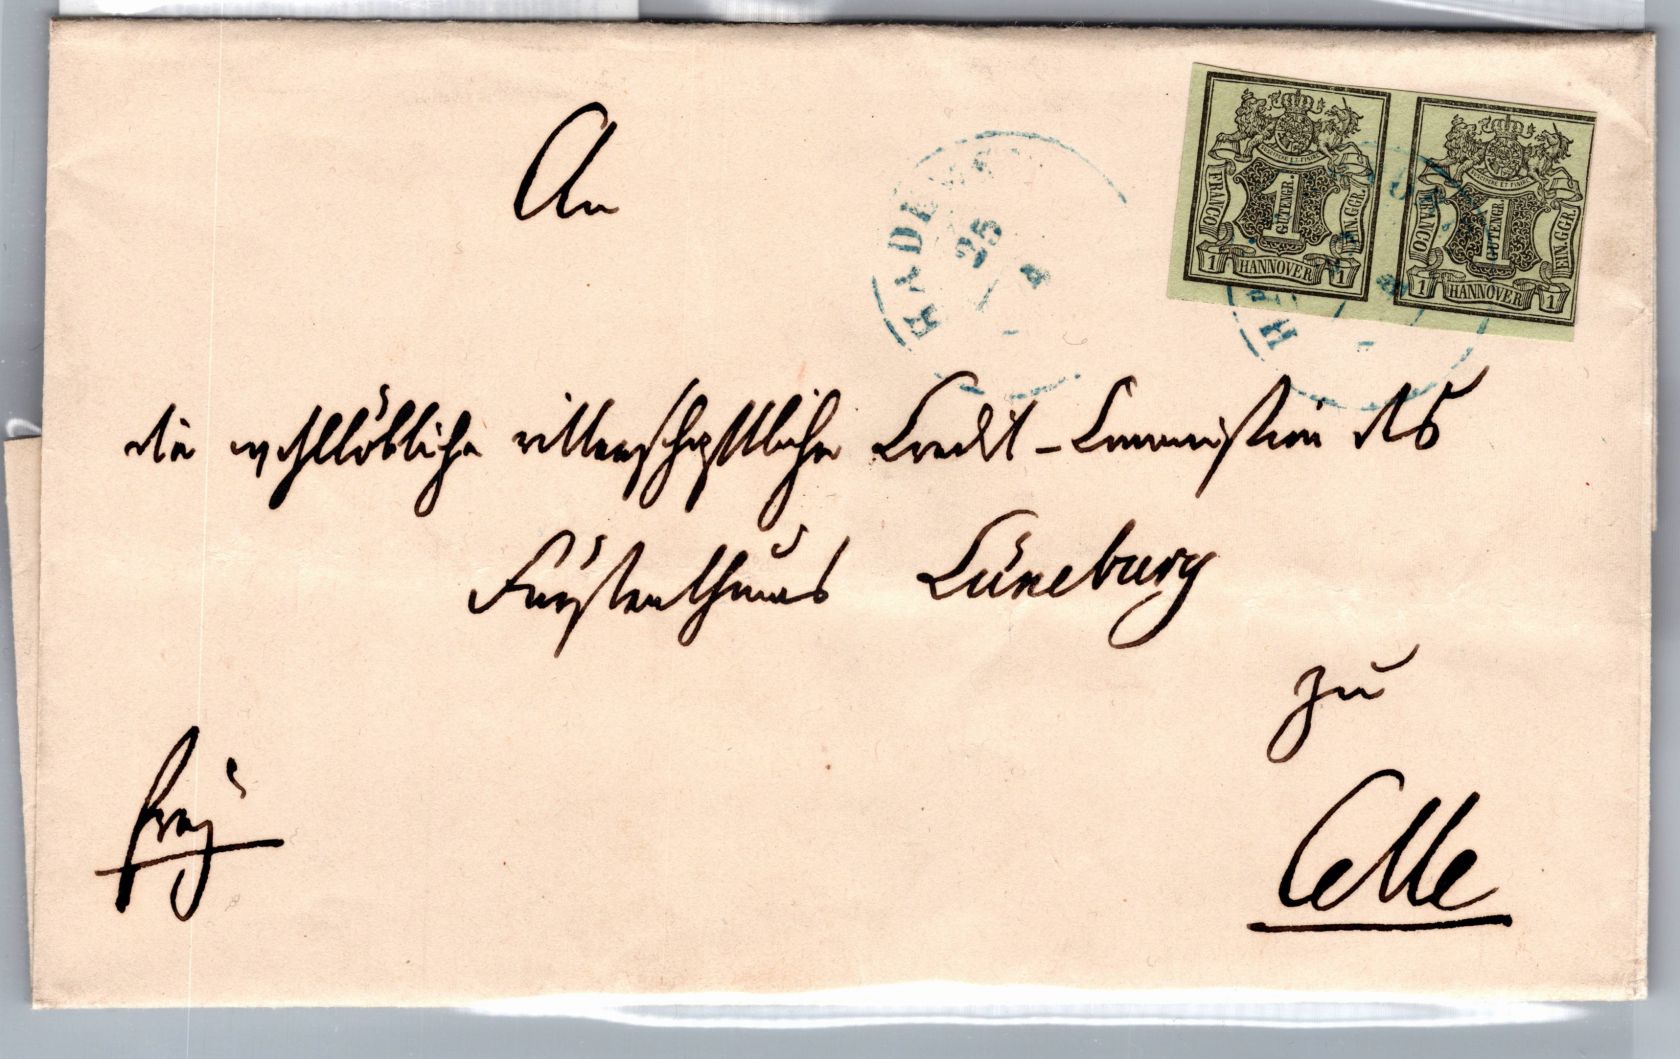 An
die wohllöbliche ritterschaftliche Credit-Commission des
Fürstenthums Lüneburg
zu
Celle
frey
HADE
25
4
SUSCIPERE ET FINIRE
FRANCO
1
GUTENGR.
EIN.GGR.
1 HANNOVER 1
SUSCIPERE ET FINIRE
FRANCO
1
GUTENGR.
EIN.GGR.
1 HANNOVER 1